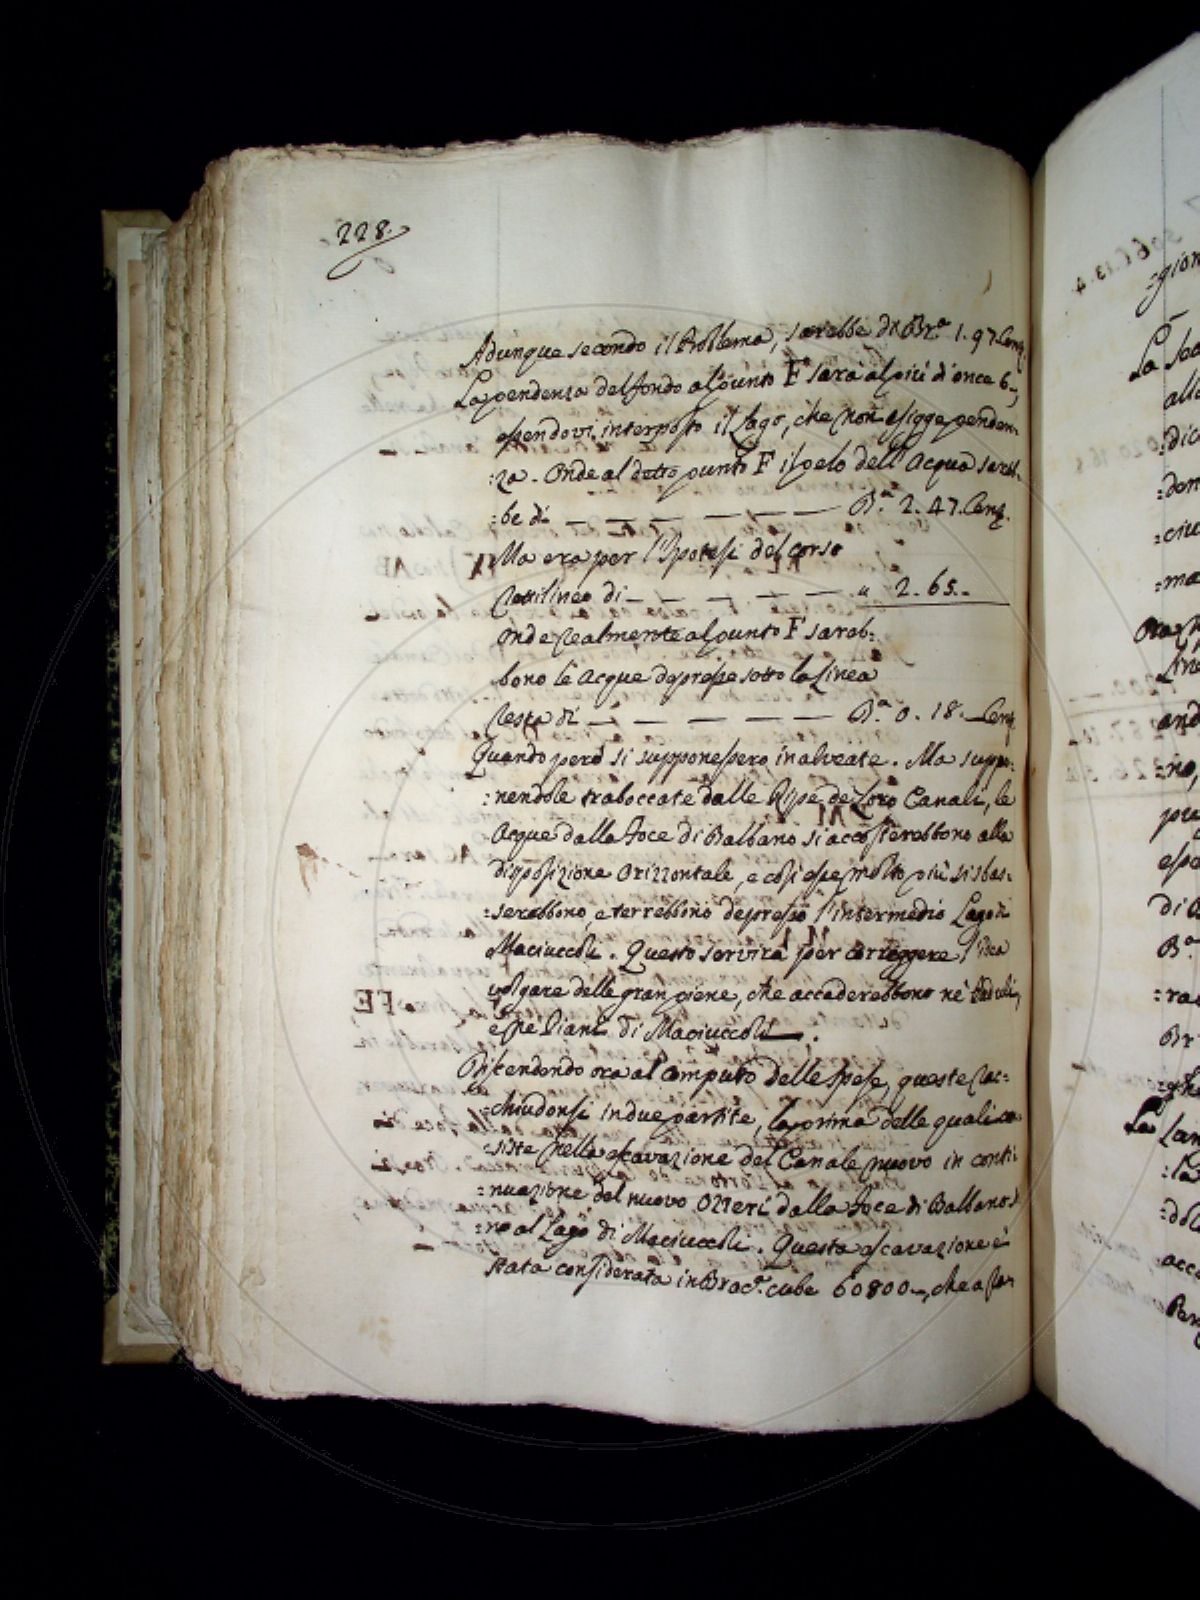 228.
Adunque secondo il Problema, sarebbe di Br.ª 1.97 Cent.
La pendenza del fondo al punto F sarà al più d'once 6,
essendovi interposto il Lago, che non esigge penden-
:za. Onde al detto punto F il pelo dell'Acqua sareb-
:be di — — — — — — — B.ª 2.47. Cent.
Ma era per l'Ipotesi del corso
Rettilineo di — — — — — — " 2.65.-
Onde realmente al punto F sareb:
bono le Acque depresse sotto la Linea
Retta di — — — — — — — B.ª 0.18.— Cent.
Quando però si supponessero inalveate. Ma suppo:
:nendole traboccate dalle Ripe de Loro Canali, le
Acque dalla Foce di Balbano si accosterebbono alla
disposizione Orizzontale, e così esse molto più si sbas:
:serebbono, e terrebbono depresso l'intermedio Lago di
Maciuccoli. Questo servirà per correggere l'idea
volgare delle gran piene, che accaderebbono ne'
e ne Piani di Maciuccoli.
Discendendo ora al Computo delle spese, queste rac:
:chiudonsi in due partite, la prima delle quali con
:siste nella escavazione del Canale nuovo in conti:
:nuazione del nuovo Ozzeri dalla Foce di Balbano si
:no al Lago di Maciuccoli. Questa escavazione è
stata considerata in Brac.ª cube 60800, che a ra-
:gion
La